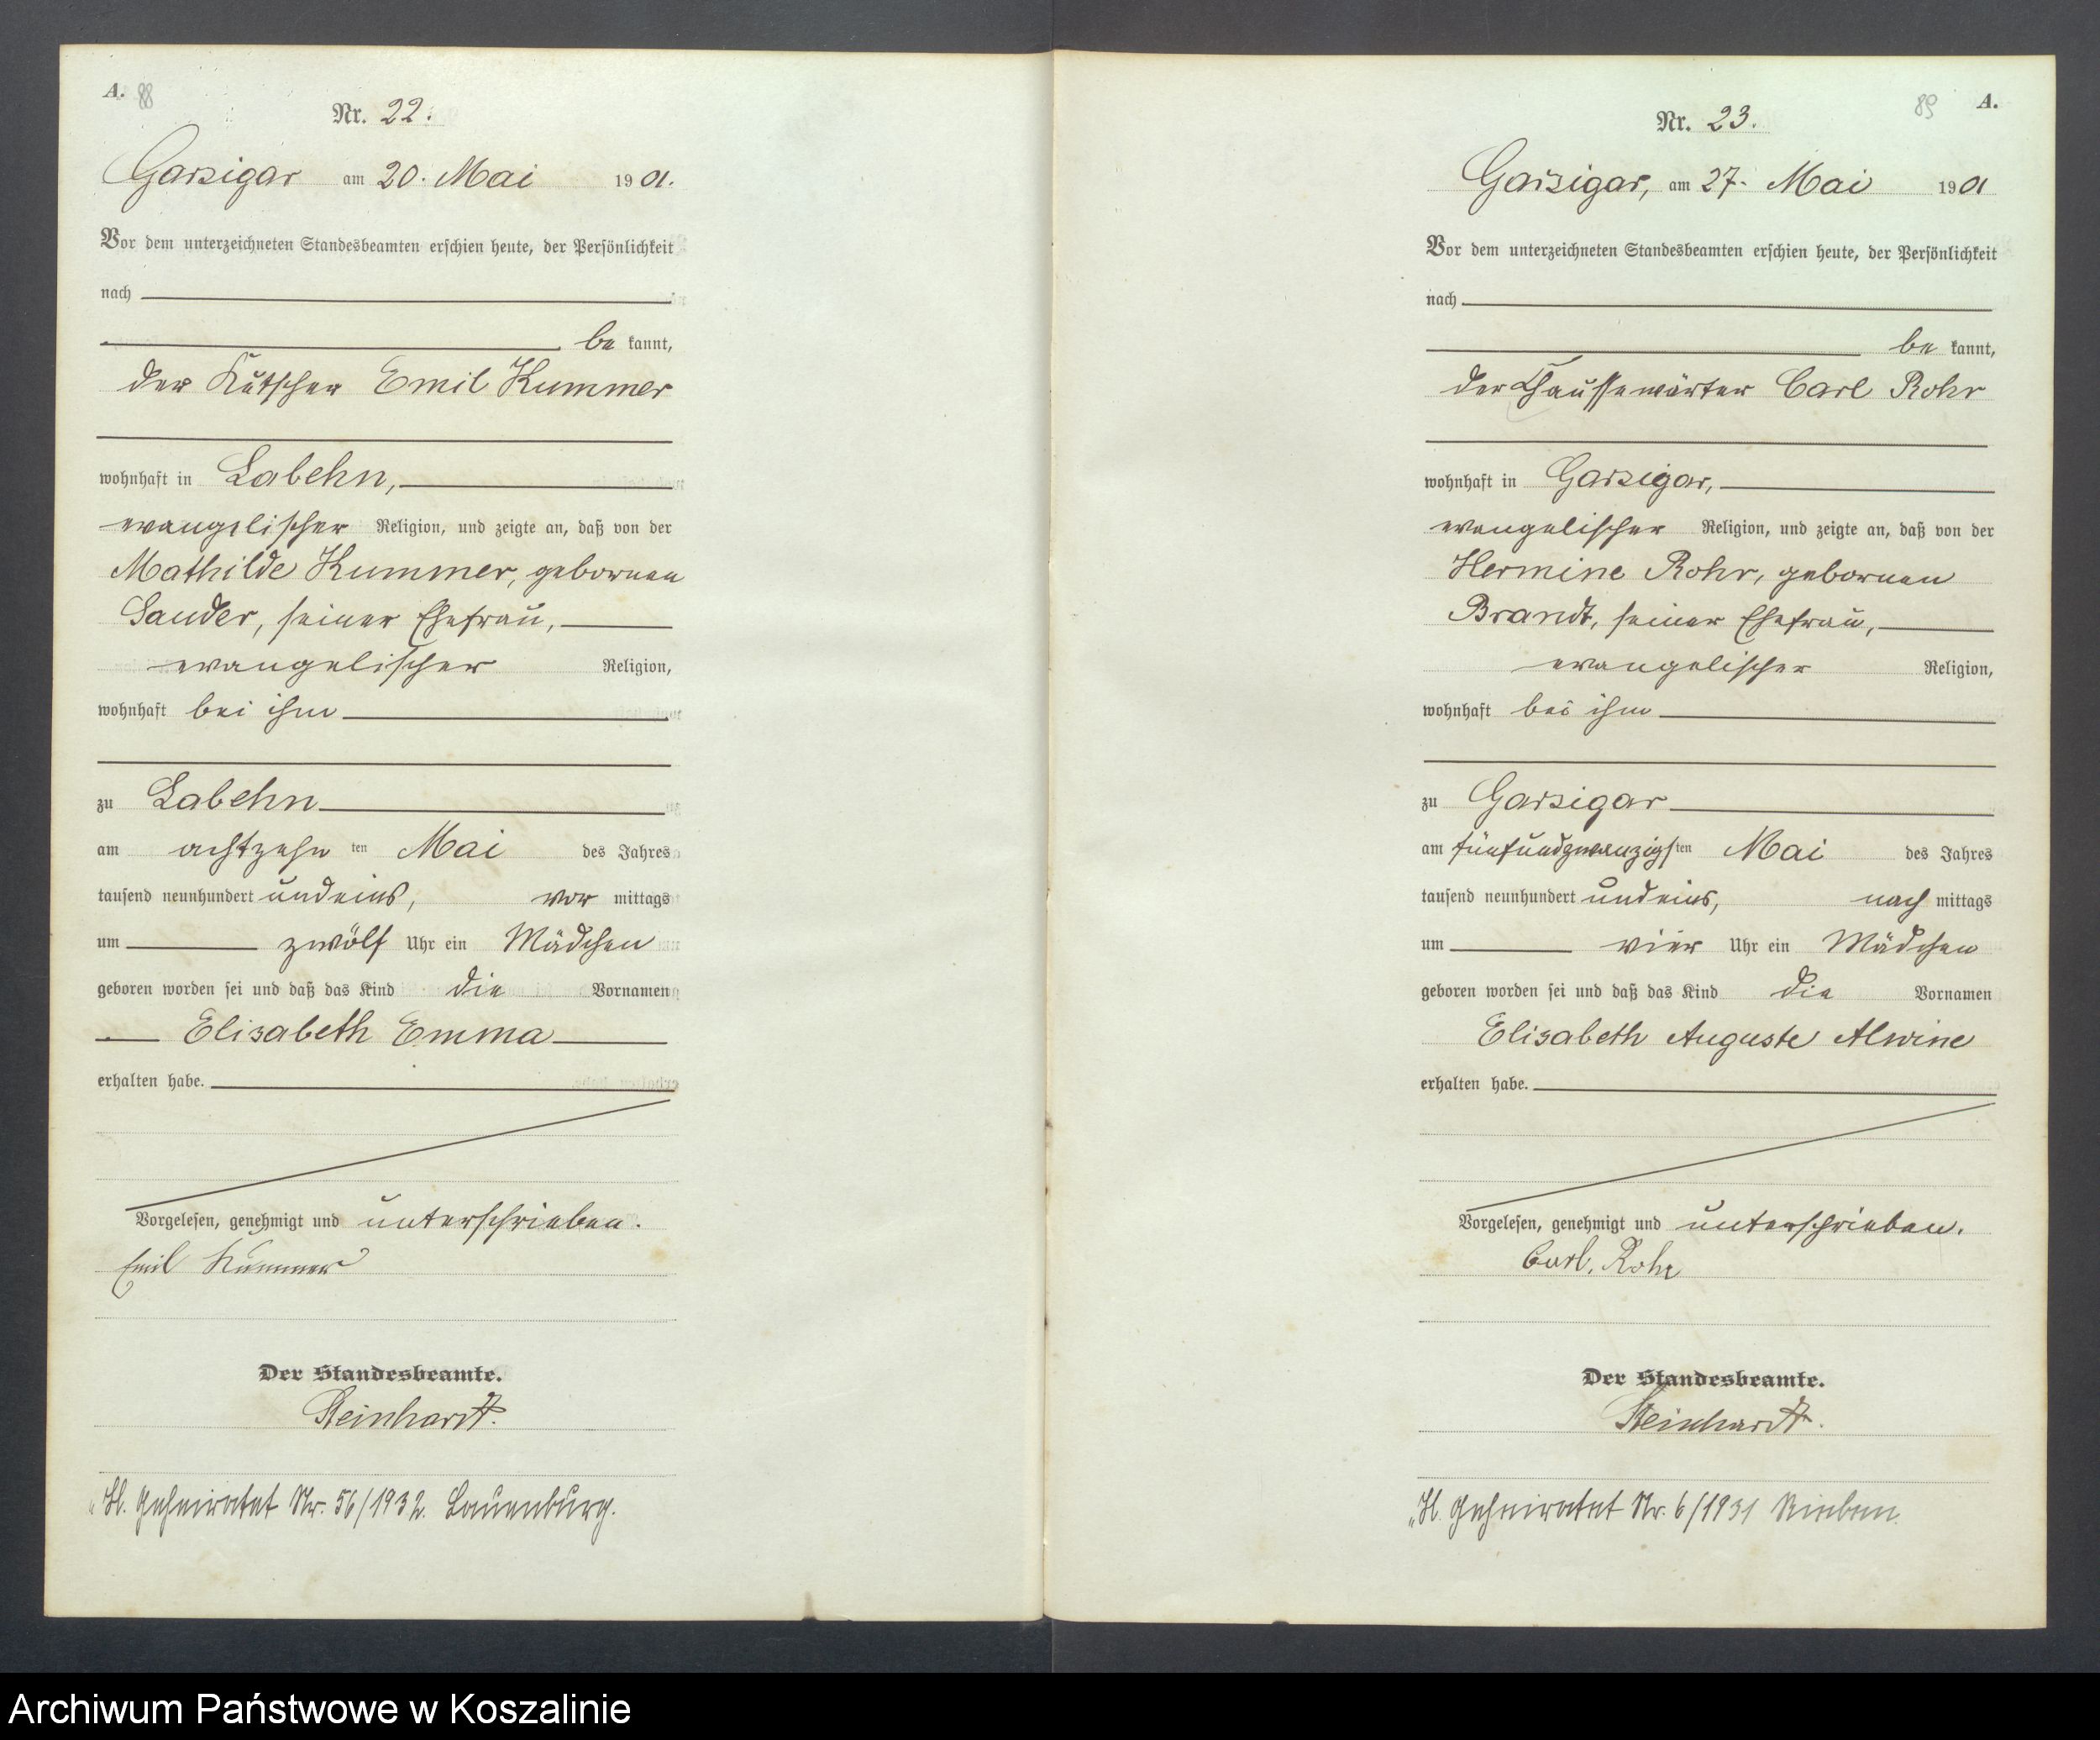 A. 88
Nr. 22.
Garzigar am 20. Mai 1901.
Vor dem unterzeichneten Standesbeamten erschien heute, der Persönlichkeit
nach
be kannt,
der Kutscher Emil Kummer
wohnhaft in Labehn,
evangelischer Religion, und zeigte an, daß von der
Mathilde Kummer, gebornen
Sander, seiner Ehefrau,
evangelischer Religion,
wohnhaft bei ihm
zu Labehn
am achtzehn ten Mai des Jahres
tausend neunhundert undeins, vor mittags
um zwölf Uhr ein Mädchen
geboren worden sei und daß das Kind die Vornamen
Elisabeth Emma
erhalten habe.
Vorgelesen, genehmigt und unterschrieben.
Emil Kummer
Der Standesbeamte.
Steinhardt.
geheiratet Nr. 56/1932. Lauenburg.
89 A.
Nr. 23.
Garzigar, am 27. Mai 1901
Vor dem unterzeichneten Standesbeamten erschien heute, der Persönlichkeit
nach
be kannt,
der Chaussewärter Carl Rohr
wohnhaft in Garzigar,
evangelischer Religion, und zeigte an, daß von der
Hermine Rohr, gebornen
Brandt, seiner Ehefrau,
evangelischer Religion,
wohnhaft bei ihm
zu Garzigar
am fünfundzwanzigsten Mai des Jahres
tausend neunhundert undeins, nach mittags
um vier Uhr ein Mädchen
geboren worden sei und daß das Kind die Vornamen
Elisabeth Auguste Alwine
erhalten habe.
Vorgelesen, genehmigt und unterschrieben.
Carl. Rohr
Der Standesbeamte.
Steinhardt.
geheiratet Nr. 6/1931
Archiwum Państwowe w Koszalinie